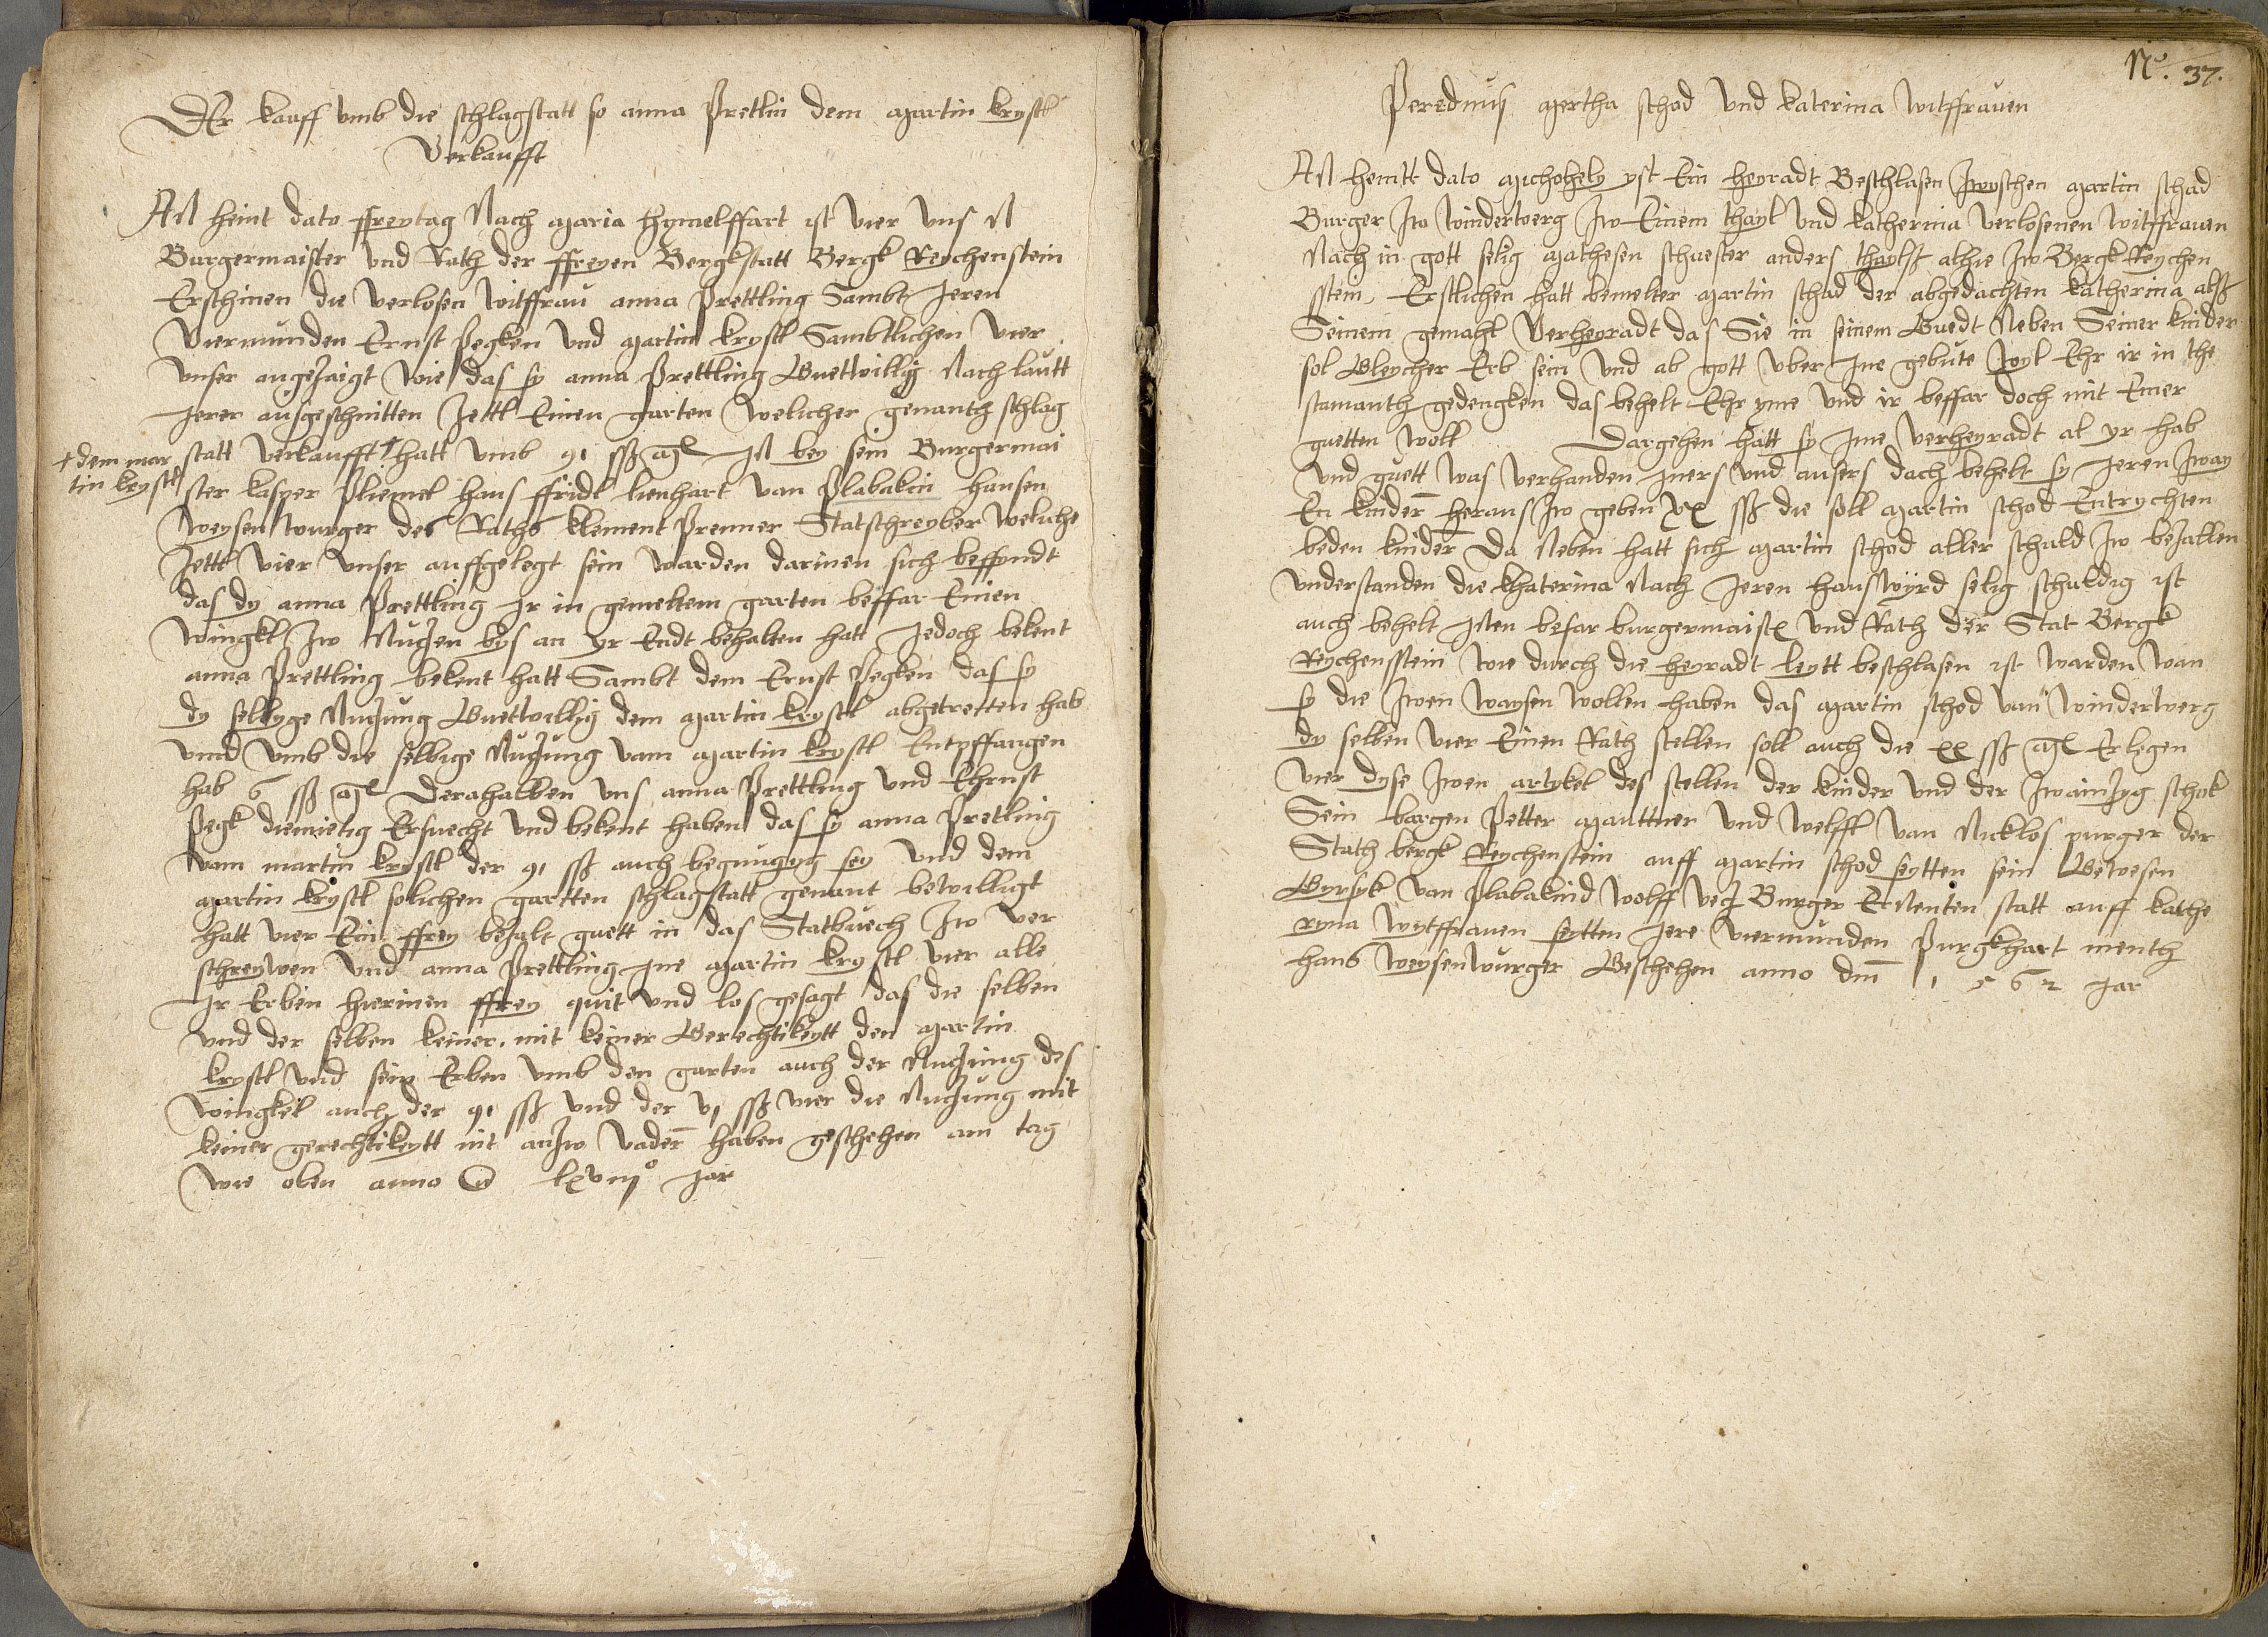 Der kauff vmb die schlagstatt so anna Pretlin dem Martin krystl
Verkaufft
An heint dato ffreytag Nach Maria Hymelffart ist vier vns N
Burgermaister vnd Rath der ffreyen Bergkstatt Bergk Reychenstein
Erschinen die verlosen witffrau anna Prettling Sambt Jeren
Viermunden Ernst Pegken vnd Martin krystl Sambtlichen vier
vnser angezaigt wie das sy anna Prettling Guettwillig Nach lautt
Jerer ausgeschnitten Zettl Einen garten welicher genanth schlag
statt verkaufft † hatt vmb 91 sß In bey sein Burgermai
† dem mar
tin krystl
ster kasper Pliemel hans ffridl lienhart van Plabakin hansen
Weysenwurger des Raths klement Prenner Statschreyber weliche
Zettl vier vnser auffgelegt sein warden darinen sich beffyndt
das dy anna Prettling Ir in gemeltem garten beffar Einen
Wingkl zw Nuczen bys an yr Endt behalten hatt Jedoch bekent
anna Prettling bekent hatt Sambt dem Ernst Pegken das sy
dy selbyge Nuczung Guettwillig dem Martin krystl abgetretten hab
vnnd vmb die selbige Nuczung vam Martin krystl Entpffangen
hab 6 sß Derahalben vns anna Prettling vnd Ehrnst
Pegk diemietig Ersuecht vnd bekent haben das sy anna Pretling
vam martin krystl der 91 sß auch begnugyg sey vnd dem
Martin krystl solichen gartten schlagstatt genant bewilligt
hatt vier Ein ffrey bezalt guett in das Statbuech zw ver
schreywen vnd anna Prettling Ine Martin krystl vier alle
Ir Erben hierinen ffrey quit vnd los gesagt das die selben
vnd der selben keiner mit keiner Gerechtikeytt den Martin
krystl vnd sein Erben vmb den garten auch der Nuczung des
wingkel auch der 91 sß vnd der vj sß vier die Nuczung mit
keiner gerechtikeytt nit anzw vadern haben geschehen am tag
wie oben anno lxviijo Jar
No. 37.
Martha schod vnd katerina witffrauen
An heintt dato Michohely yst Ein heyradt Beschlasen zwyschen Martin schad
Burger zw Winderwerg zw Einem thayl vnd katherina verlosenen witffrauen
Nach in gott selig Mathesen schuester anders thaylß alhie zw Bergk Reychen
stein Erstlichen hatt bemelter Martin schad der abgedachten katherina alß
Seinem gemahl Verheyradt das Sie in seinem Guedt Neben Seiner kinder
sol Gleycher Erb sein vnd ab gott vber Ine gebute wyl Ehr ir in the
stamanth gedengken das behelt Ehr yme vnd ir beffar doch mit Einer
guetten woll Dargehen hatt sy Ime verheyradt al yr hab
vnd guett was verhanden Iners vnd ausers dach behelt sy Jeren zway
En kindern heraus zw geben XX sß die soll Martin schod Entrychten
beden kindern Da Neben hatt sich Martin schod aller schuld zw bezallen
vnderstanden die khaterina Nach Jeren hauswyrd selig schuldig ist
auch behelt Inen befar burgermaister vnd Rath der Stat Bergk
Reychensstein wie durch die heyradt leytt beschlasen ist warden wan
sy die zwen waysen wollen haben das Martin schod van Winderwerg
dy selben vier Einen Rath stellen soll auch die xx sß Erlegen
vier dyse zwen artykel des stellen der kinder vnd der zwainzyg schok
Sein bargen Petter Mauttner vnd wolff van Nicklos purger der
Stath bergk Reychenstein auff Martin schod seytten sein Gewesen
Gyrsyk van Plabakind wolff Burger Ernenten statt auff kathe
ryna wytffrauen seytten Jere viermunden Purgkhart menth
hans weysenwurger Geschehen anno dm 1562 Jar